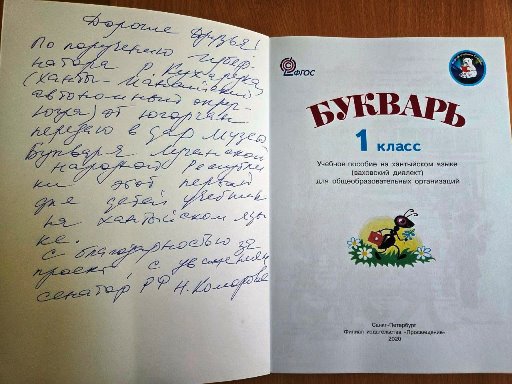 Дорогие друзья!
По поручению Губер-
натора Р. Кухарука
(Ханты-Мансийский
автономный округ-
Югра) от югорчан
передаю в дар Музею
Букваря Луганской
народной Республи-
ки этот первый
для детей учебник
на хантыйском язы-
ке.
С благодарностью за
проект, с уважением,
сенатор РФ Н. Комарова
ФГОС
БУКВАРЬ
1 класс
Учебное пособие на хантыйском языке
(ваховский диалект)
для общеобразовательных организаций
Санкт-Петербург
Филиал издательства «Просвещение»
2020